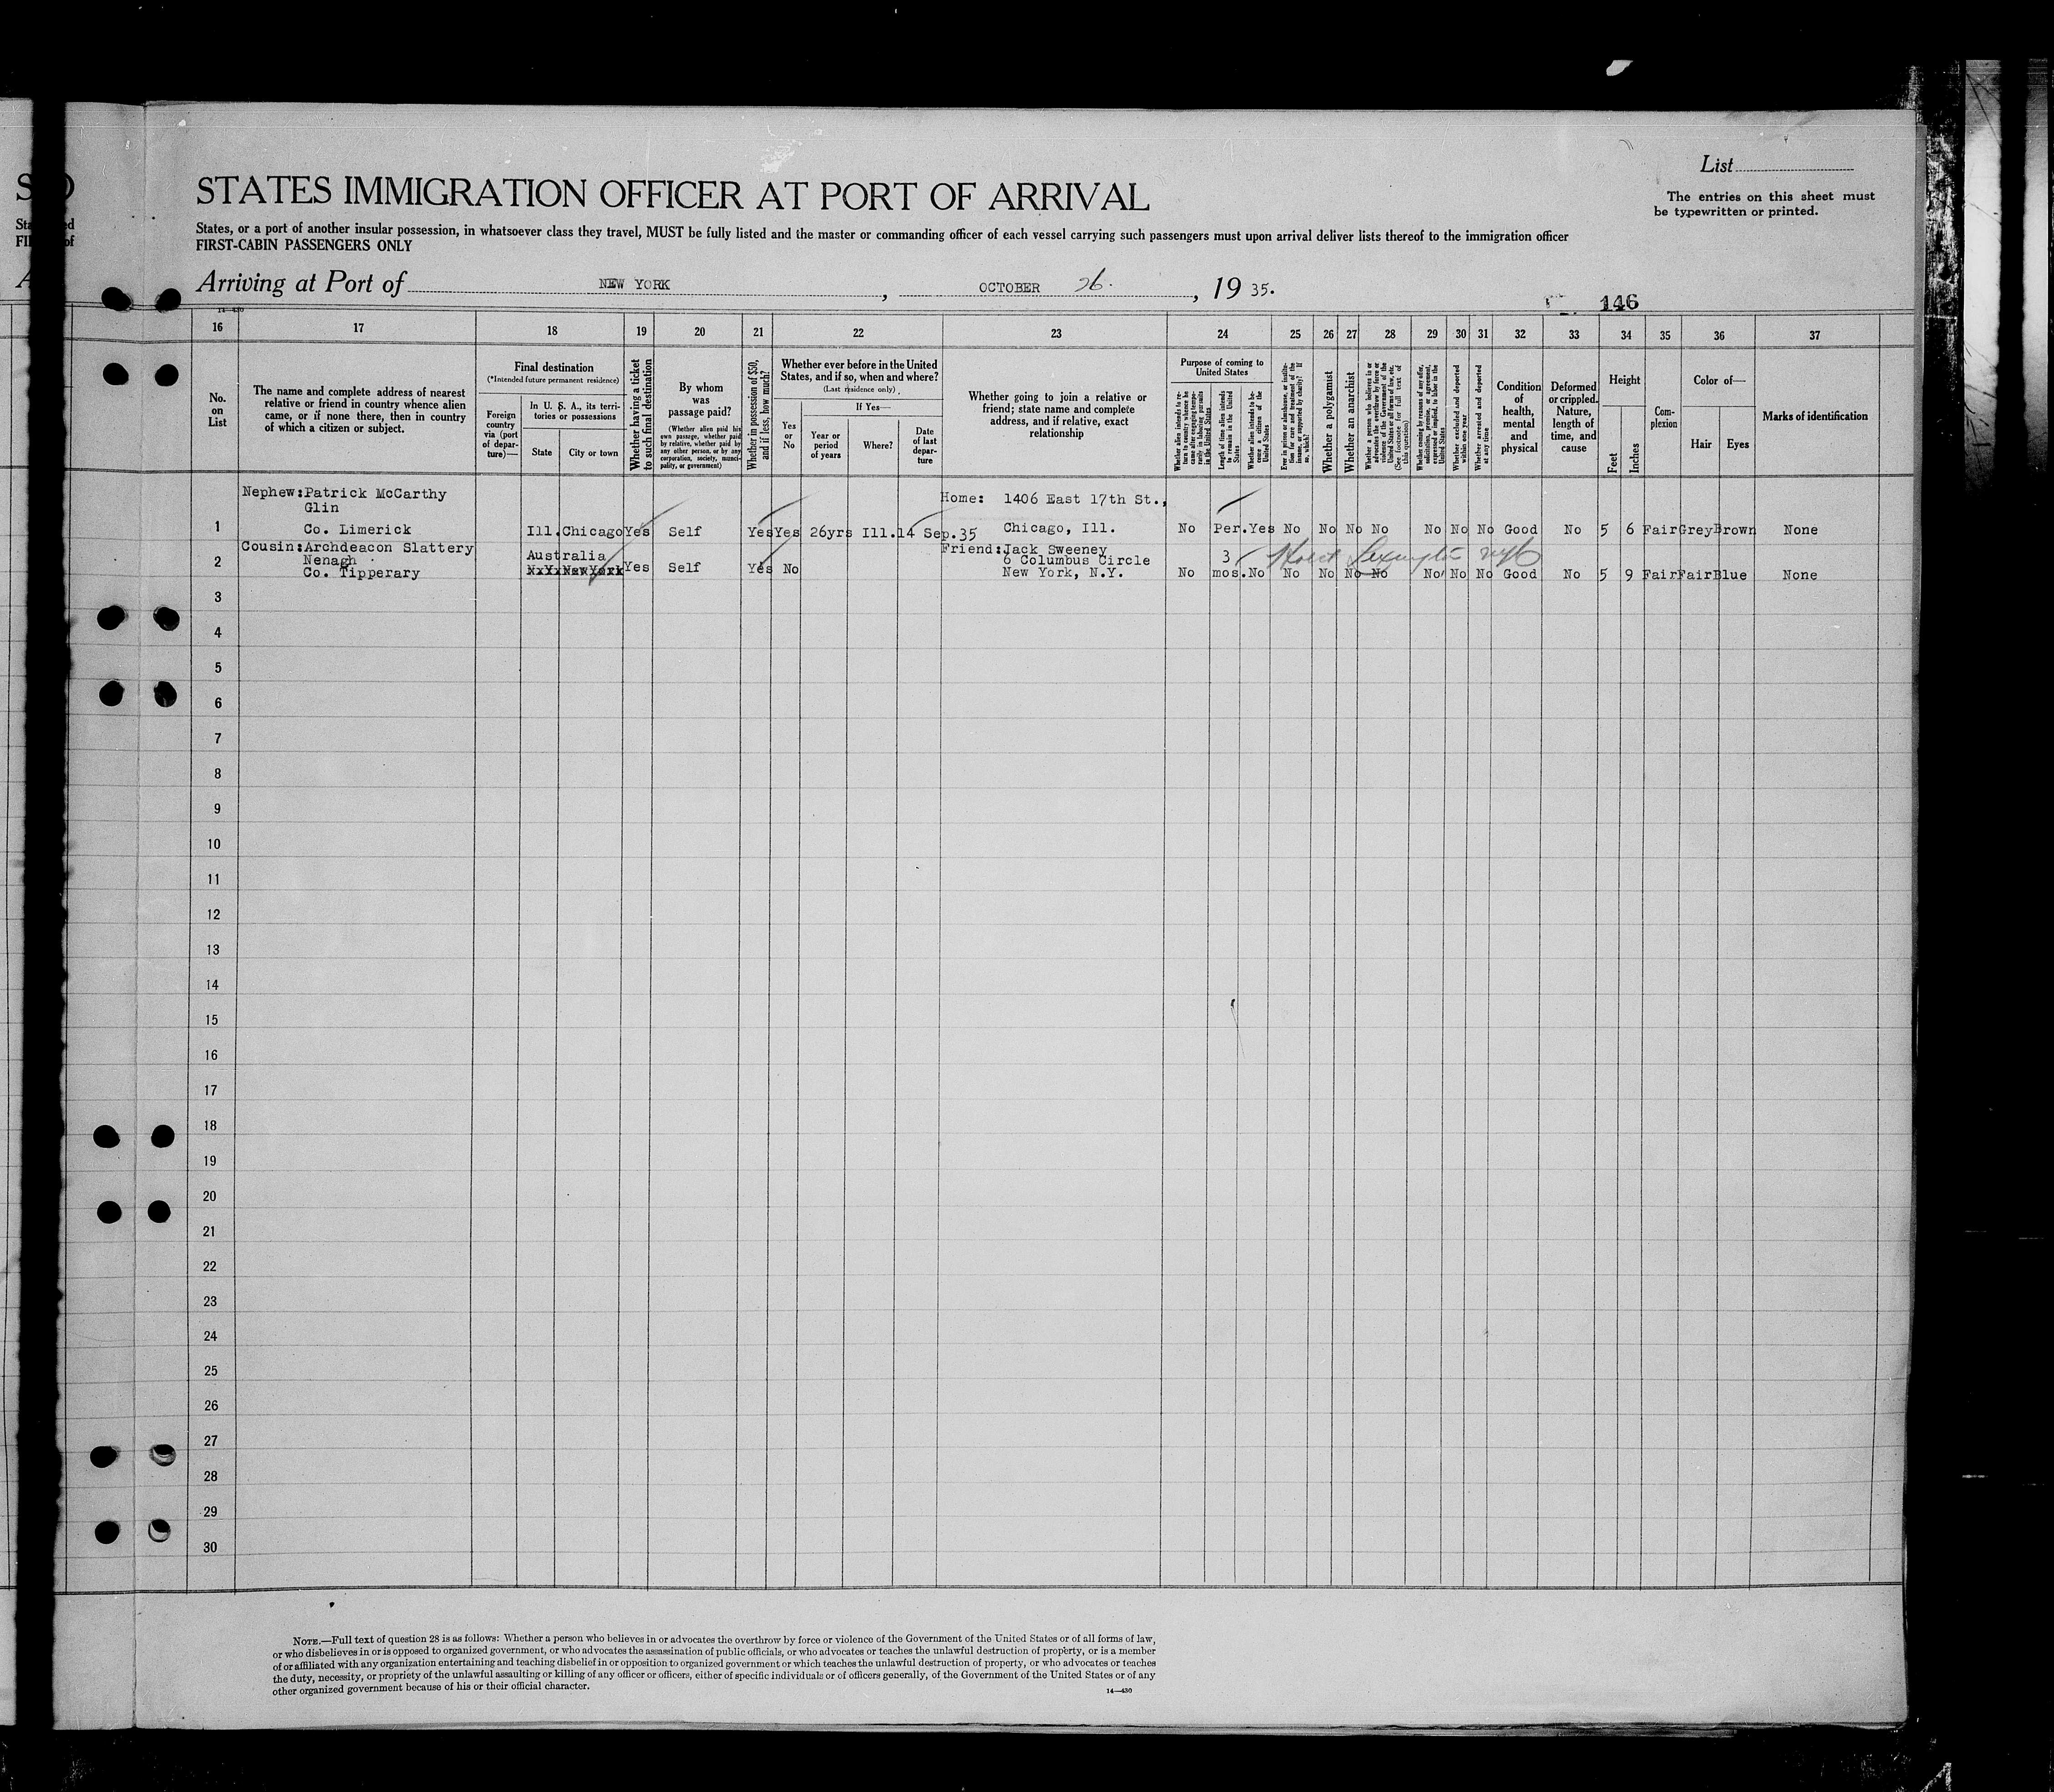 S
D
Sta
ed
FI
of
A
List
The entries on this sheet must
be typewritten or printed.
STATES IMMIGRATION OFFICER AT PORT OF ARRIVAL
States, or a port of another insular possession, in whatsoever class they travel, MUST be fully listed and the master or commanding officer of each vessel carrying such passengers must upon arrival deliver lists thereof to the immigration officer
FIRST-CABIN PASSENGERS ONLY
Arriving at Port of NEW YORK, OCTOBER 26., 1935.
146
14—430
16 17 18 19 20 21 22 23 24 25 26 27 28 29 30 31 32 33 34 35 36 37
No.
on
List
The name and complete address of nearest
relative or friend in country whence alien
came, or if none there, then in country
of which a citizen or subject.
Final destination
(*Intended future permanent residence)
Foreign
country
via (port
of depar-
ture)—
In U. S. A., its terri-
tories or possessions
State
City or town
Whether having a ticket
to such final destination
By whom
was
passage paid?
(Whether alien paid his
own passage, whether paid
by relative, whether paid by
any other person, or by any
corporation, society, munici-
pality, or government)
Whether in possession of $50,
and if less, how much?
Whether ever before in the United
States, and if so, when and where?
(Last residence only)
Yes
or
No
If Yes—
Year or
period
of years
Where?
Date
of last
depar-
ture
Whether going to join a relative or
friend; state name and complete
address, and if relative, exact
relationship
Purpose of coming to
United States
Whether alien intends to re-
turn to country whence he
came after engaging tempo-
rarily in laboring pursuits
in the United States
Length of time alien intends
to remain in the United
States
Whether alien intends to be-
come a citizen of the
United States
Ever in prison or almshouse, or institu-
tion for care and treatment of the
insane, or supported by charity? If
so, which?
Whether a polygamist
Whether an anarchist
Whether a person who believes in or
advocates the overthrow by force or
violence of the Government of the
United States or all forms of law, etc.
(See footnote for full text of
this question)
Whether coming by reasons of any offer,
solicitation, promise, or agreement,
expressed or implied, to labor in the
United States
Whether excluded and deported
within one year
Whether arrested and deported
at any time
Condition
of
health,
mental
and
physical
Deformed
or crippled.
Nature,
length of
time, and
cause
Height
Feet
Inches
Com-
plexion
Color of—
Hair
Eyes
Marks of identification
Nephew:Patrick McCarthy Home: 1406 East 17th St.,
Glin
1 Co. Limerick Ill. Chicago Yes Self Yes Yes 26yrs Ill. 14 Sep.35 Chicago, Ill. No Per. Yes No No No No No No No Good No 5 6 Fair Grey Brown None
Cousin:Archdeacon Slattery Australia Friend:Jack Sweeney 3 Hotel Lexington NYC
2 Nenagh Yes Self Yes No 6 Columbus Circle
Co. Tipperary New York, N.Y. No mos. No No No No No No No No Good No 5 9 Fair Fair Blue None
3
4
5
6
7
8
9
10
11
12
13
14
15
16
17
18
19
20
21
22
23
24
25
26
27
28
29
30
NOTE.—Full text of question 28 is as follows: Whether a person who believes in or advocates the overthrow by force or violence of the Government of the United States or of all forms of law,
or who disbelieves in or is opposed to organized government, or who advocates the assassination of public officials, or who advocates or teaches the unlawful destruction of property, or is a member
of or affiliated with any organization entertaining and teaching disbelief in or opposition to organized government or which teaches the unlawful destruction of property, or who advocates or teaches
the duty, necessity, or propriety of the unlawful assaulting or killing of any officer or officers, either of specific individuals or of officers generally, of the Government of the United States or of any
other organized government because of his or their official character.
14—430